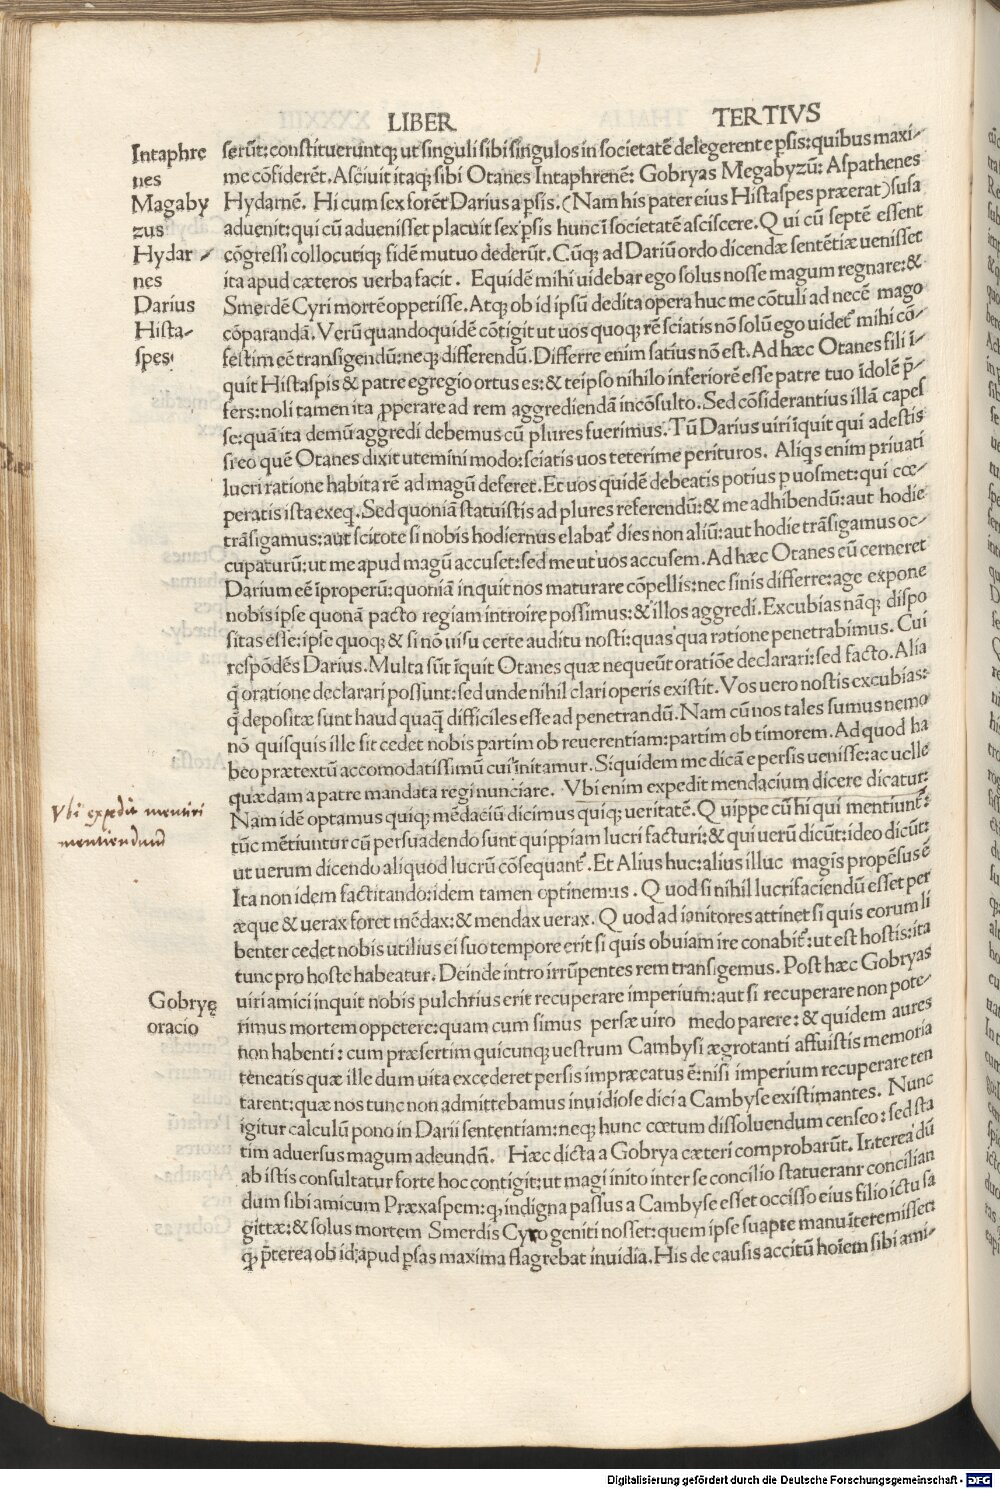 LIBER TERTIVS
Intaphre
nes
Magaby
zus
Hydar
nes
Darius
Hista-
spes
serūt: constitueruntq; ut singuli sibi singulos in societatē delegerent e ꝑsis: quibus maxi-
me cōfiderēt. Asciuit itaq; sibi Otanes Intaphrenē: Gobryas Megabyzū: Aspathenes
Hydarnē. Hi cum sex forēt Darius a ꝑsis. (Nam his pater eius Histaspes præerat) susa
aduenit: qui cū aduenisset placuit sex ꝑsis hunc ī societatē asciscere. Qui cū septē essent
cōgressi collocutiq; fidē mutuo dederūt. Cūq; ad Dariū ordo dicendæ sentētiæ uenisset
ita apud cæteros uerba facit. Equidē mihi uidebar ego solus nosse magum regnare: &
Smerdē Cyri mortē oppetisse. Atq; ob id ipsū dedita opera huc me cōtuli ad necē mago
cōparandā. Verū quandoquidē cōtigit ut uos quoq; rē sciatis nō solū ego uidet᷑ mihi cō-
festim eē transigendū: neq; differendū. Differre enim satius nō est. Ad hæc Otanes fili ī-
quit Histaspis & patre egregio ortus es: & teipso nihilo inferiorē esse patre tuo īdolē p̄-
fers: noli tamen ita ꝓperare ad rem aggrediendā incōsulto. Sed cōsiderantius illā capes
se: quā ita demū aggredi debemus cū plures fuerimus. Tū Darius uiri īquit qui adestis
si eo quē Otanes dixit utemini modo: sciatis uos teterime perituros. Aliqs enim priuati
lucri ratione habita rē ad magū deferet. Et uos quidē debeatis potius p uosmet: qui cœ-
peratis ista exeq. Sed quoniā statuistis ad plures referendū: & me adhibendū: aut hodie
trāsigamus: aut scitote si nobis hodiernus elabat᷑ dies non aliū: aut hodie trāsigamus oc-
cupaturū: ut me apud magū accuset: sed me ut uos accusem. Ad hæc Otanes cū cerneret
Darium eē īproperū: quoniā inquit nos maturare cōpellis: nec sinis differre: age expone
nobis ipse quonā pacto regiam introire possimus: & illos aggredi. Excubias nāq; dispo
sitas esse: ipse quoq; & si nō uisu certe auditu nosti: quas qua ratione penetrabimus. Cui
respōdēs Darius. Multa sūt īquit Otanes quæ nequeūt oratiōe declarari: sed facto. Alia
q̄ oratione declarari possunt: sed unde nihil clari operis existit. Vos uero nostis excubias:
q̄ depositæ sunt haud quaq̄ difficiles esse ad penetrandū. Nam cū nos tales sumus nemo
nō quisquis ille sit cedet nobis partim ob reuerentiam: partim ob timorem. Ad quod ha
beo prætextū accomodatissimū cui īnitamur. Siquidem me dicā e persis uenisse: ac uelle
quædam a patre mandata regi nunciare. Vbi enim expedit mendacium dicere dicatur:
Vbi expedit mentiri
mentiendum
Nam idē optamus quiq; mēdaciū dicimus quiq; ueritatē. Quippe cū hi qui mentiunt᷑:
tūc mētiuntur cū persuadendo sunt quippiam lucri facturi: & qui uerū dicūt: ideo dicūt:
ut uerum dicendo aliquod lucrū cōsequant᷑. Et Alius huc: alius illuc magis propēsus ē
Ita non idem factitando: idem tamen optinemus. Quod si nihil lucrifaciendū esset per
æque & uerax foret mēdax: & mendax uerax. Quod ad ianitores attinet si quis eorum li
benter cedet nobis utilius ei suo tempore erit si quis obuiam ire conabit᷑: ut est hostis: ita
tunc pro hoste habeatur. Deinde intro irrūpentes rem transigemus. Post hæc Gobryas
Gobryę
oracio
uiri amici inquit nobis pulchrius erit recuperare imperium: aut si recuperare non pote-
rimus mortem oppetere: quam cum simus persæ uiro medo parere: & quidem aures
non habenti: cum præsertim quicunq; uestrum Cambysi ægrotanti affuistis memoria
teneatis quæ ille dum uita excederet persis impræcatus ē: nisi imperium recuperare ten
tarent: quæ nos tunc non admittebamus inuidiose dici a Cambyse existimantes. Nunc
igitur calculū pono in Darii sententiam: neq; hunc cœtum dissoluendum censeo: sed sta
tim aduersus magum adeundū. Hæc dicta a Gobrya cæteri comprobarūt. Interea dū
ab istis consultatur forte hoc contigit: ut magi inito inter se concilio statueranr concilian
dum sibi amicum Præxaspem: q, indigna passus a Cambyse esset occisso eius filio ictu sa
gittæ: & solus mortem Smerdis Cyro geniti nosset: quem ipse suapte manu īteremisset:
q, p̄terea ob id: apud ꝑsas maxima flagrebat inuidia. His de causis accitū hoiem sibi ami-
Digitalisierung gefördert durch die Deutsche Forschungsgemeinschaft - DFG